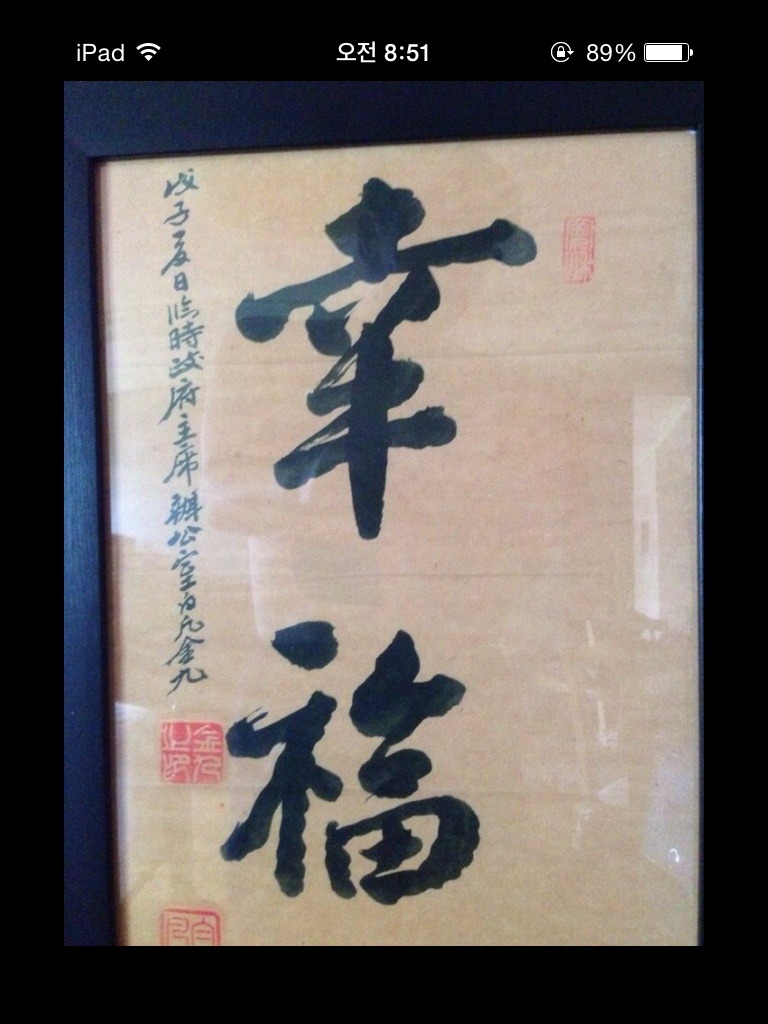 iPad 오전 8:51 89%
幸福
戊子夏日臨時政府主席辦公室白凡金九
金九之印